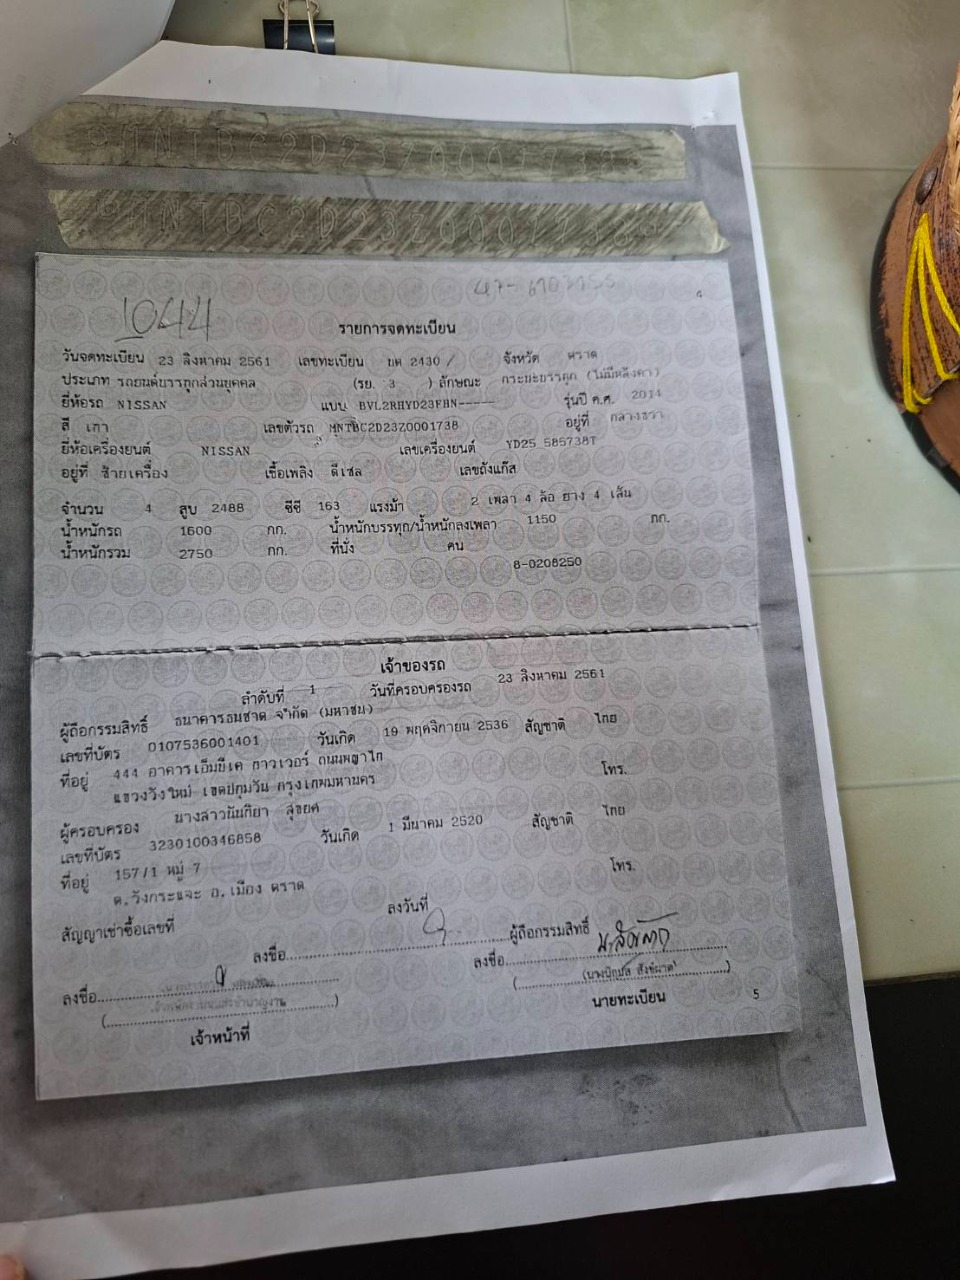 MNTBC2D23Z0001738
MNTBC2D23Z0001738
1044
4
รายการจดทะเบียน
วันจดทะเบียน 23 สิงหาคม 2561 เลขทะเบียน บต 2430 / จังหวัด ตราด
ประเภท รถยนต์บรรทุกส่วนบุคคล (รย. 3 ) ลักษณะ กระบะบรรทุก (ไม่มีหลังคา)
ยี่ห้อรถ NISSAN แบบ BVL2RHYD23FHN----- รุ่นปี ค.ศ. 2014
สี เทา เลขตัวรถ MNTBC2D23Z0001738 อยู่ที่ กลางขวา
ยี่ห้อเครื่องยนต์ NISSAN เลขเครื่องยนต์ YD25 585738T
อยู่ที่ ซ้ายเครื่อง เชื้อเพลิง ดีเซล เลขถังแก๊ส
จำนวน 4 สูบ 2488 ซีซี 163 แรงม้า 2 เพลา 4 ล้อ ยาง 4 เส้น
น้ำหนักรถ 1600 กก. น้ำหนักบรรทุก/น้ำหนักลงเพลา 1150 กก.
น้ำหนักรวม 2750 กก. ที่นั่ง คน
8-0208250
เจ้าของรถ
ลำดับที่ 1 วันที่ครอบครองรถ 23 สิงหาคม 2561
ผู้ถือกรรมสิทธิ์ ธนาคารธนชาต จำกัด (มหาชน)
เลขที่บัตร 0107536001401 วันเกิด 19 พฤศจิกายน 2536 สัญชาติ ไทย
ที่อยู่ 444 อาคารเอ็มบีเค ทาวเวอร์ ถนนพญาไท โทร.
แขวงวังใหม่ เขตปทุมวัน กรุงเทพมหานคร
ผู้ครอบครอง นางสาวนันทิยา สุขยศ
เลขที่บัตร 3230100346858 วันเกิด 1 มีนาคม 2520 สัญชาติ ไทย
ที่อยู่ 157/1 หมู่ 7 โทร.
ต.วังกระแจะ อ.เมือง ตราด
สัญญาเช่าซื้อเลขที่ ลงวันที่
ลงชื่อ ผู้ถือกรรมสิทธิ์
ลงชื่อ ลงชื่อ
เจ้าหน้าที่ นายทะเบียน 5